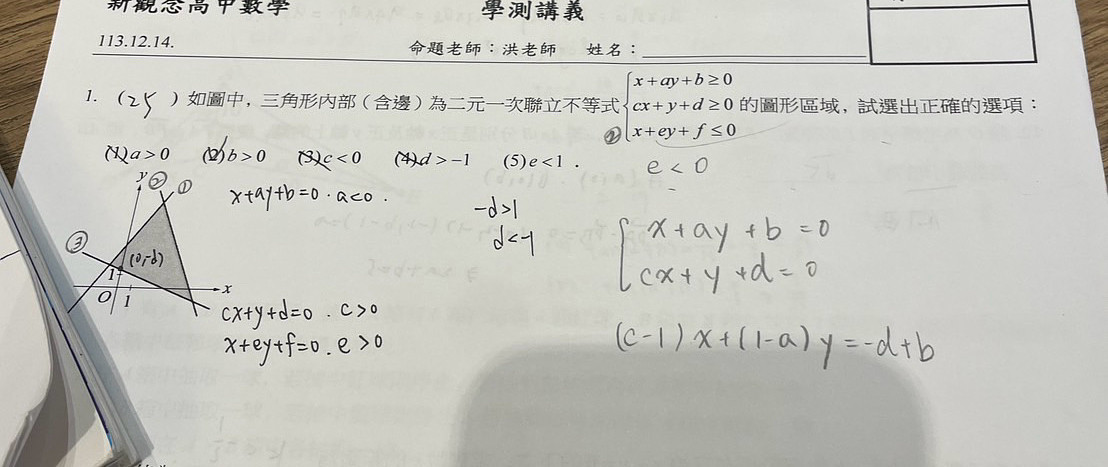 新觀念高中數學 學測講義
113.12.14. 命題老師：洪老師 姓名：
x+ay+b≥0
1. (25) 如圖中，三角形內部（含邊）為二元一次聯立不等式 cx+y+d≥0 的圖形區域，試選出正確的選項：
② x+ey+f≤0
(1)a>0 (2)b>0 (3)c<0 (4)d>-1 (5)e<1． e<0
y ② ①
x+ay+b=0．a<0．
-d>1
d<-1
x+ay+b=0
cx+y+d=0
③ (0,-d)
1
O 1 x
cx+y+d=0．c>0
x+ey+f=0．e>0
(c-1)x+(1-a)y=-d+b